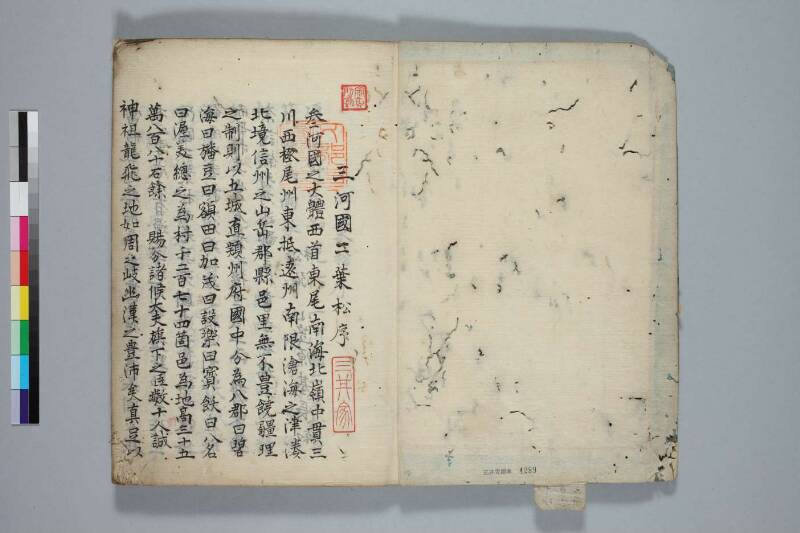 三河國二葉松序
叁河國之大體西首東尾南海北嶺中貫三
川西極尾州東抵遠州南限滄海之津湊
北境信州之山岳郡縣邑里無不豊饒疆理
之制則以五城直類州府國中分為八郡曰碧
海曰幡豆曰額田曰加茂曰設樂曰寳飫曰八名
曰渥美總之為村千二百七十四箇邑為地高三十五
萬八百八十石餘賜分諸候大夫旗下之臣數十人誠
神祖龍飛之地如周之岐豳漢之豊沛矣真足以
三井家
4289